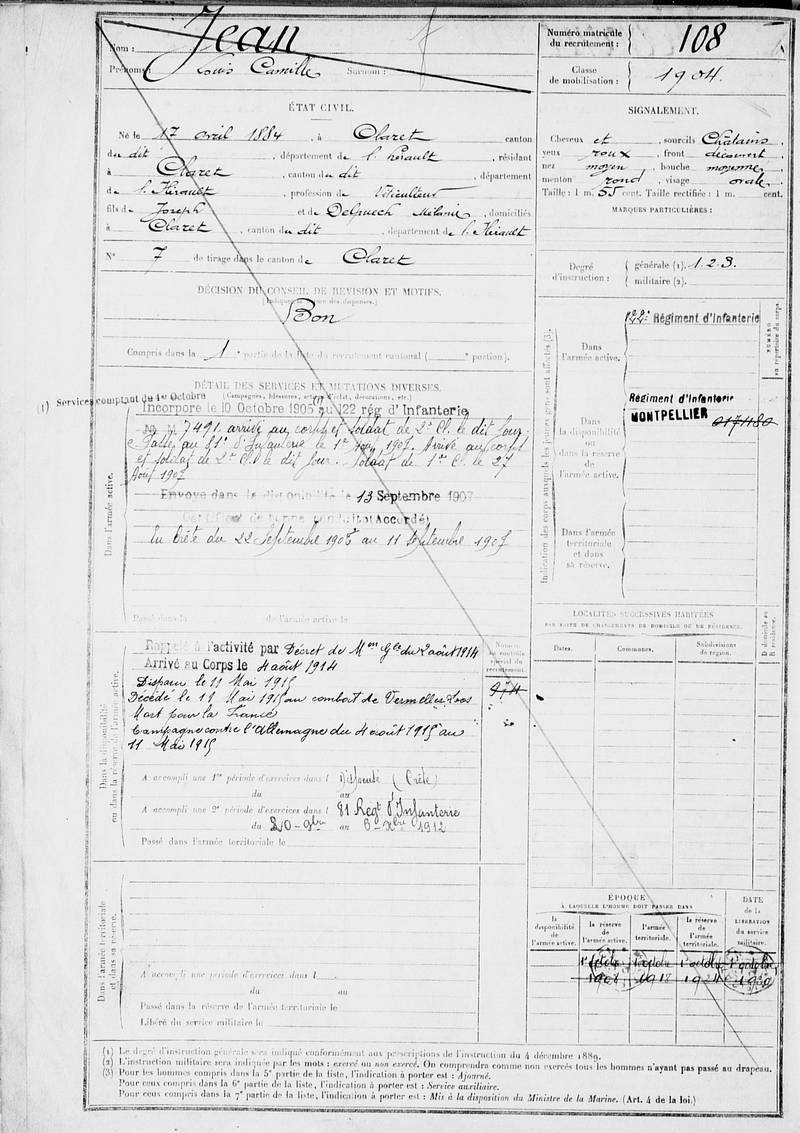 Nom : Jean
Prénoms : Louis Camille Surnom :
Numéro matricule du recrutement : 108
Classe de mobilisation : 1904.
ÉTAT CIVIL.
Né le 17 avril 1884, à Claret canton
du dit, département de l'Hérault, résidant
à Claret, canton du dit, département
de l'Hérault, profession de Viticulteur
fils de Joseph et de Delpuech Mélanie, domiciliés
à Claret, canton du dit, département de l'Hérault
N° 7 de tirage dans le canton de Claret
SIGNALEMENT.
Cheveux et, sourcils Châtains,
yeux roux, front découvert,
nez moyen, bouche moyenne,
menton rond, visage ovale.
Taille : 1 m. 55 cent. Taille rectifiée : 1 m. cent.
MARQUES PARTICULIÈRES :
Degré d'instruction : générale (1). 1.2.3.
militaire (2).
DÉCISION DU CONSEIL DE REVISION ET MOTIFS.
(Indiquer la nature des dispenses.)
Bon
Compris dans la 1e partie de la liste du recrutement cantonal ( e portion).
DÉTAIL DES SERVICES ET MUTATIONS DIVERSES.
(Campagnes, blessures, actions d'éclat, décorations, etc.)
(1) Services comptant du 1er Octobre
Dans l'armée active.
Incorporé le 10 Octobre 1905 (1) au 122 rég d'Infanterie
7491 arrivé au corps et soldat de 2e Cl. le dit jour.
Passé au 81e d'Infanterie le 1er 1907. Arrivé au corps
et soldat de 2e Cl. le dit jour. Soldat de 1re C. le 27
Août 1907
Envoyé dans la disponibilité le 13 Septembre 1907
Certificat de bonne conduite Accordé
En Crète du 22 Septembre 190 au 11 Septembre 1907
Passé dans la de l'armée active le
Indication des corps auxquels les jeunes gens sont affectés (3).
NUMÉRO au répertoire du corps.
Dans l'armée active.
122e Régiment d'Infanterie
Dans la disponibilité ou dans la réserve de l'armée active.
Régiment d'Infanterie
MONTPELLIER
Dans l'armée territoriale et dans sa réserve.
LOCALITÉS SUCCESSIVES HABITÉES
PAR SUITE DE CHANGEMENTS DE DOMICILE OU DE RÉSIDENCE.
Dates. Communes. Subdivisions de région. D domicile ou R résidence.
Dans la disponibilité ou dans la réserve de l'armée active.
Numéro au contrôle spécial du recrutement.
Rappelé à l'activité par Décret de Mon Gle du 2 août 1914
Arrivé au Corps le 4 août 1914
Disparu le 11 Mai 1915
Décédé le 11 Mai 1915 au combat de Vermelles Loos
Mort pour la France
Campagne contre l'Allemagne du 4 août 1915 au
11 Mai 1915
A accompli une 1re période d'exercices dans l (Crète)
du au
A accompli une 2e période d'exercices dans l 81 Regt d'Infanterie
du 20-9bre au 6-Xbre 1912
Passé dans l'armée territoriale le
Dans l'armée territoriale et dans sa réserve.
A accompli une période d'exercices dans l
du au
Passé dans la réserve de l'armée territoriale le
Libéré du service militaire le
ÉPOQUE
À LAQUELLE L'HOMME DOIT PASSER DANS
la disponibilité de l'armée active. la réserve de l'armée active. l'armée territoriale. la réserve de l'armée territoriale.
DATE de la LIBÉRATION du service militaire.
1er octobre 1er octobre 1er octobre 1er octobre
1908 1918 1924 1930
(1) Le degré d'instruction générale sera indiqué conformément aux prescriptions de l'instruction du 4 décembre 1889.
(2) L'instruction militaire sera indiquée par les mots : exercé ou non exercé. On comprendra comme non exercés tous les hommes n'ayant pas passé au drapeau.
(3) Pour les hommes compris dans la 5e partie de la liste, l'indication à porter est : Ajourné.
Pour ceux compris dans la 6e partie de la liste, l'indication à porter est : Service auxiliaire.
Pour ceux compris dans la 7e partie de la liste, l'indication à porter est : Mis à la disposition du Ministre de la Marine. (Art. 4 de la loi.)